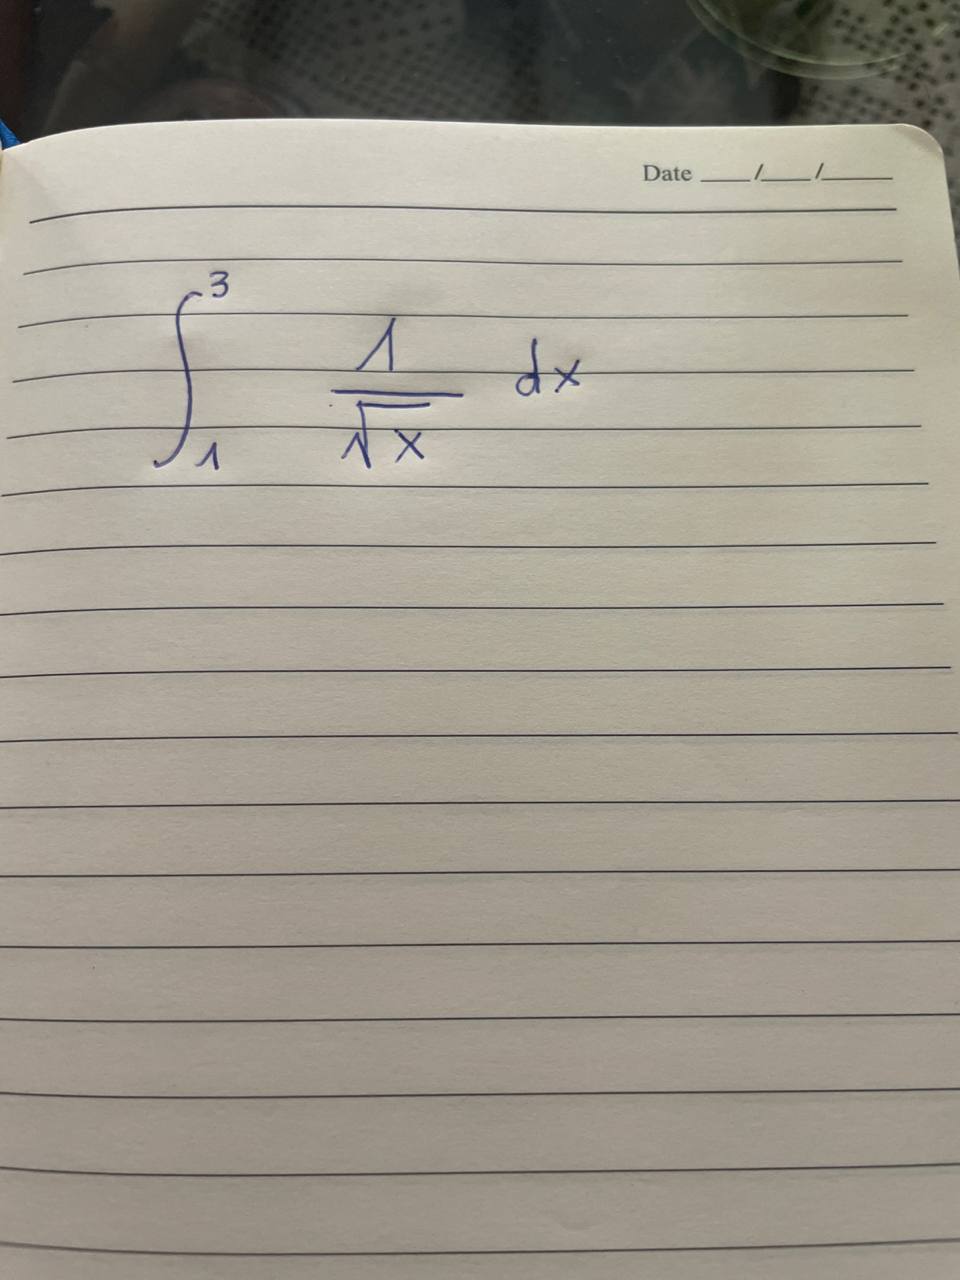 Date ___/___/_____
∫₁³ 1/√x dx